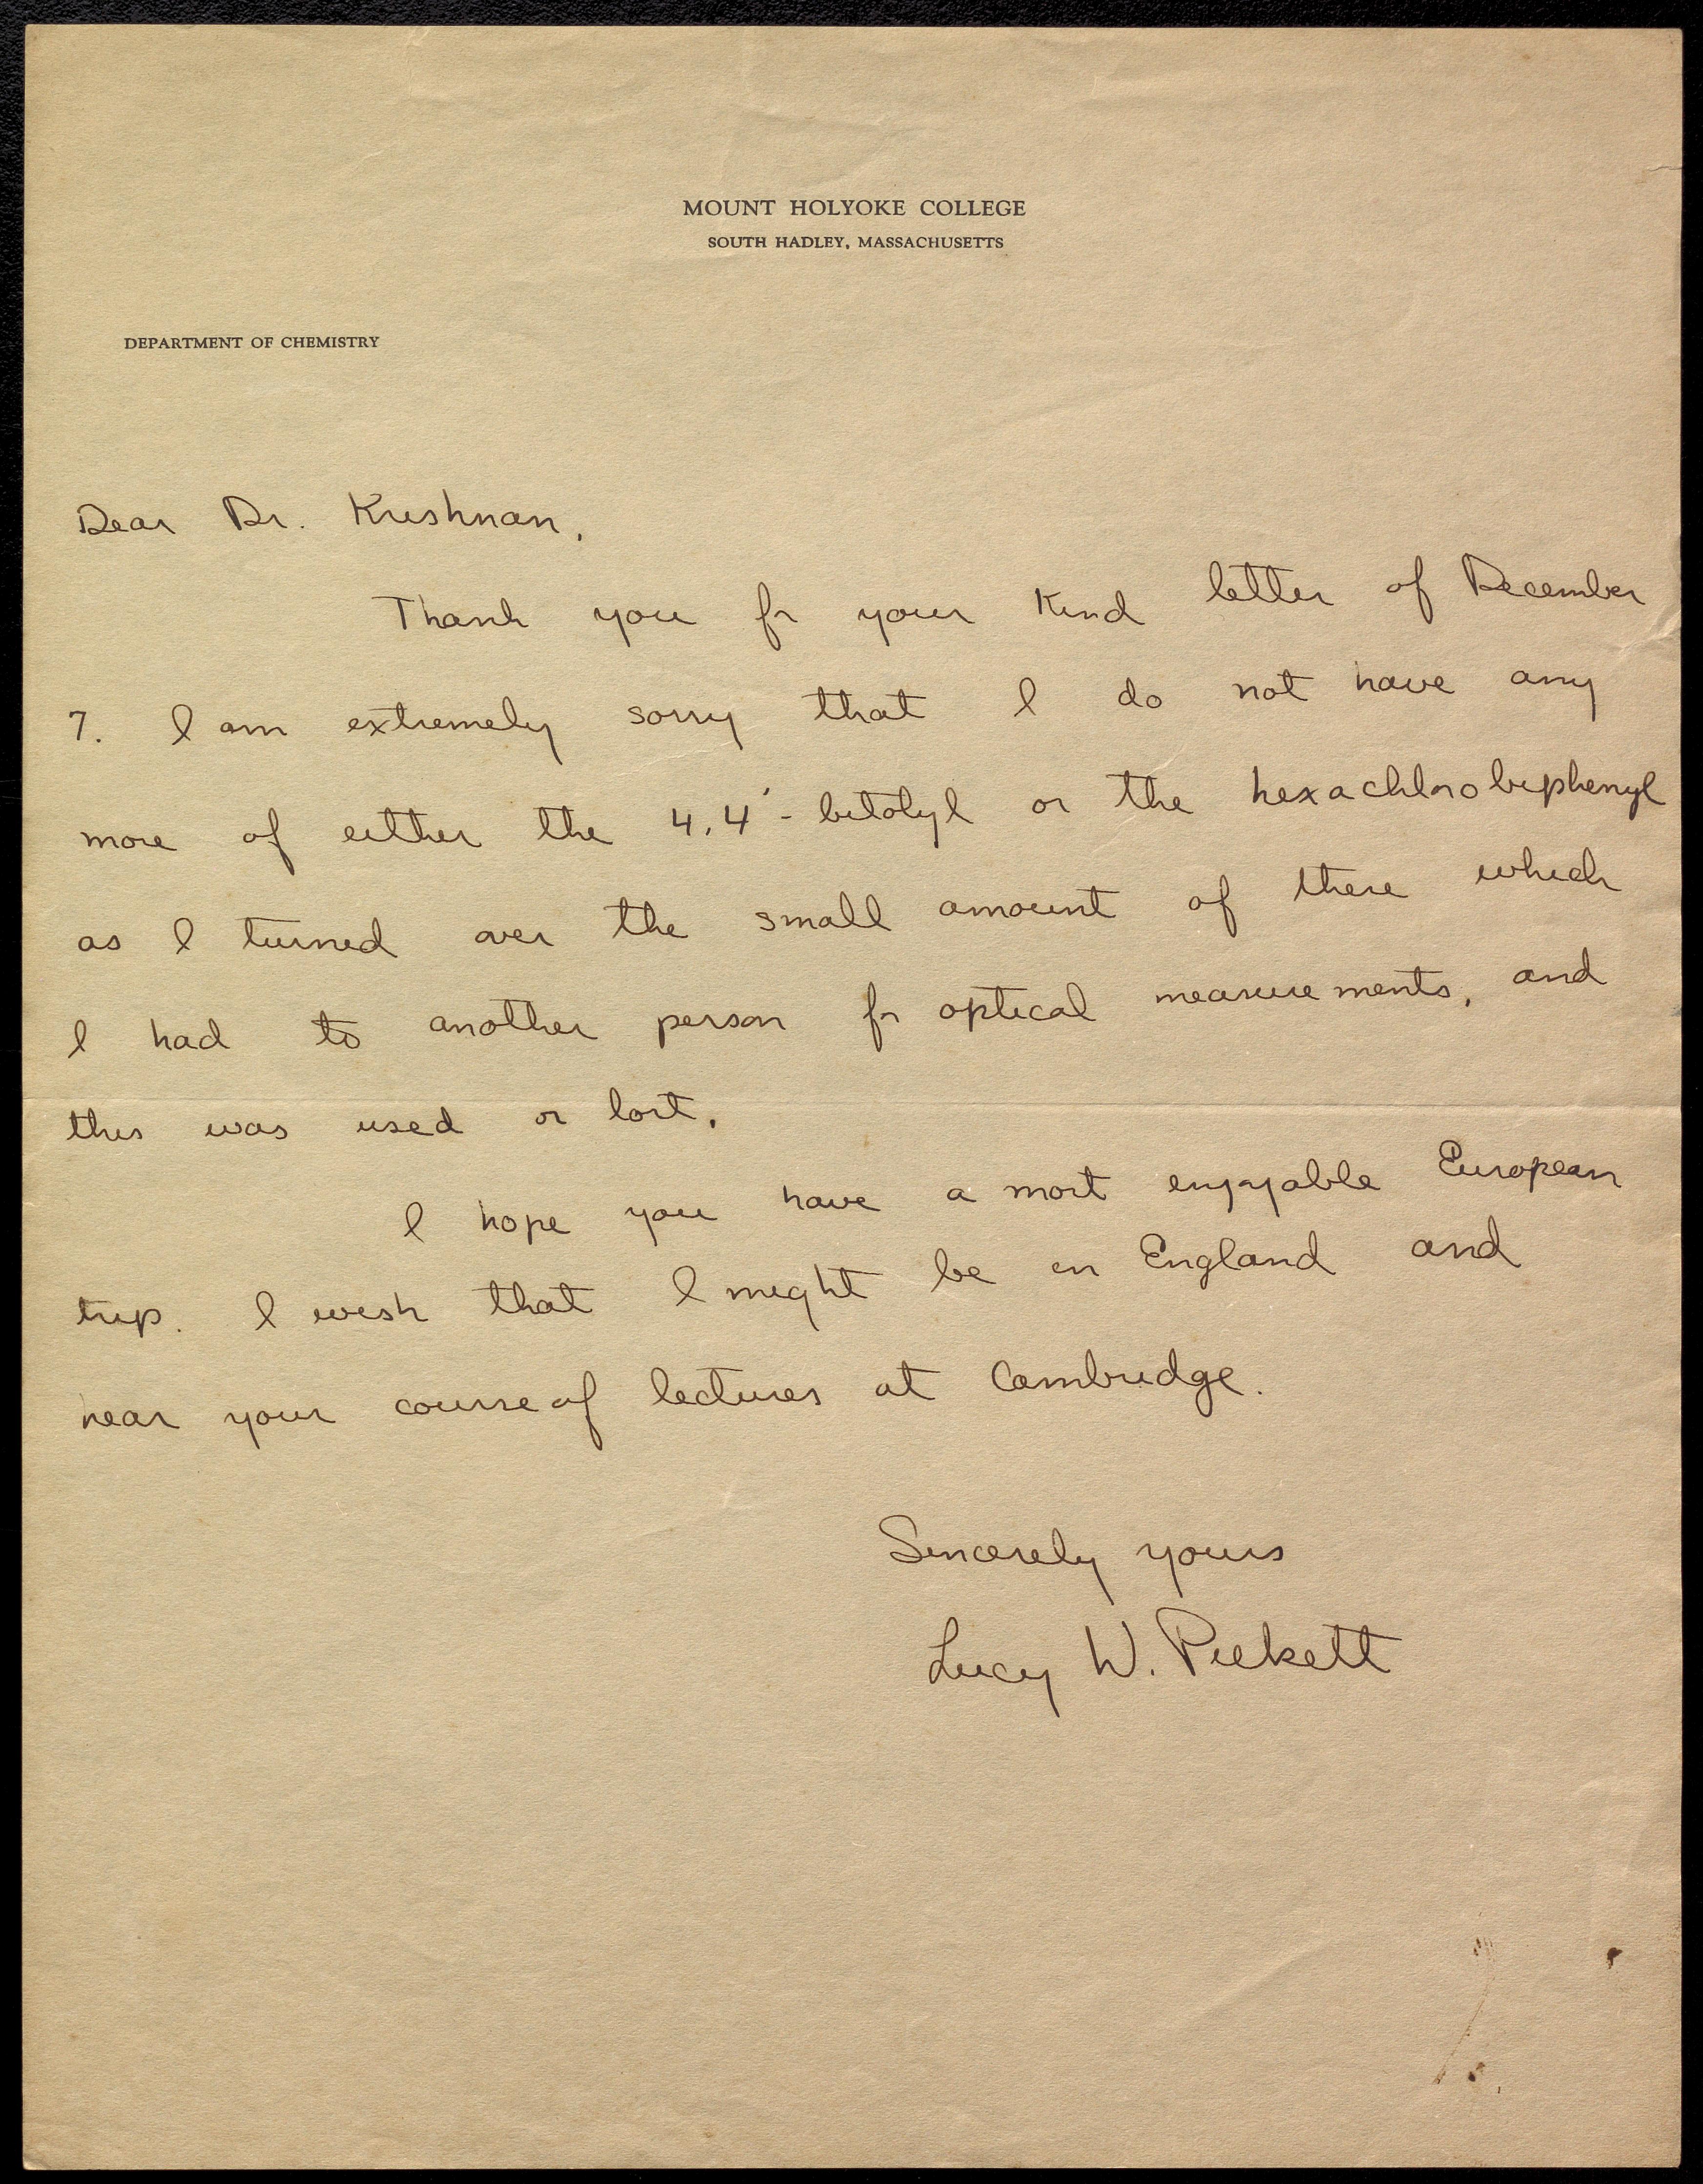 MOUNT HOLYOKE COLLEGE
SOUTH HADLEY, MASSACHUSETTS
DEPARTMENT OF CHEMISTRY
Dear Dr. Krishnan,
Thank you for your kind letter of December
7. I am extremely sorry that I do not have any
more of either the 4,4'-bitolyl or the hexachlorobiphenyl
as I turned over the small amount of these which
I had to another person for optical measurements, and
this was used or lost.
I hope you have a most enjoyable European
trip. I wish that I might be in England and
hear your course of lectures at Cambridge.
Sincerely yours
Lucy W. Pickett